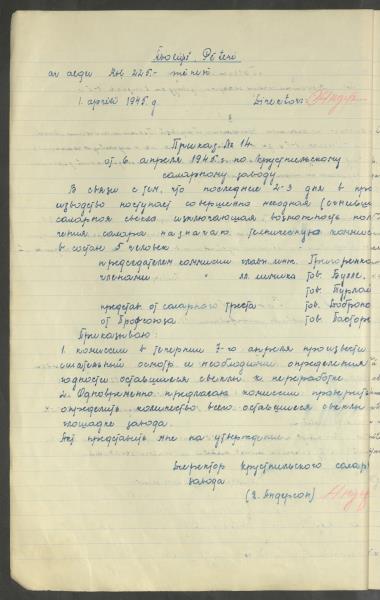 Pēteri
Rbl. 225.- mēnesī
1. aprīlī 1945. g. Direktors:
Приказ № 14.
от 6. апреля 1945 г. по Крустпильскому
сахарному заводу
В связи с тем, что последние 2-3 дня в про
изводство поступает совершенно негодная
сахарная свекла исключающая возможность полу
чения сахара назначаю техническую комисс
в состав 5 человек
председателем комиссии главн. инж. Григоренко
членами " гл. химика тов.
тов.
представ. от сахарного треста тов.
от Профсоюза тов.
Приказываю:
1. комиссии в течении 7-го апреля произвести
осмотр и необходимый определения
годности оставшиеся свеклы к переработке.
2. Одновременно предлагаю комиссии проверить
определить количество всего оставшиеся свеклы
площадке завода.
Акт представить мне на утверждение
Директор Крустпильского сахар
завода
(Я. Андерсон)